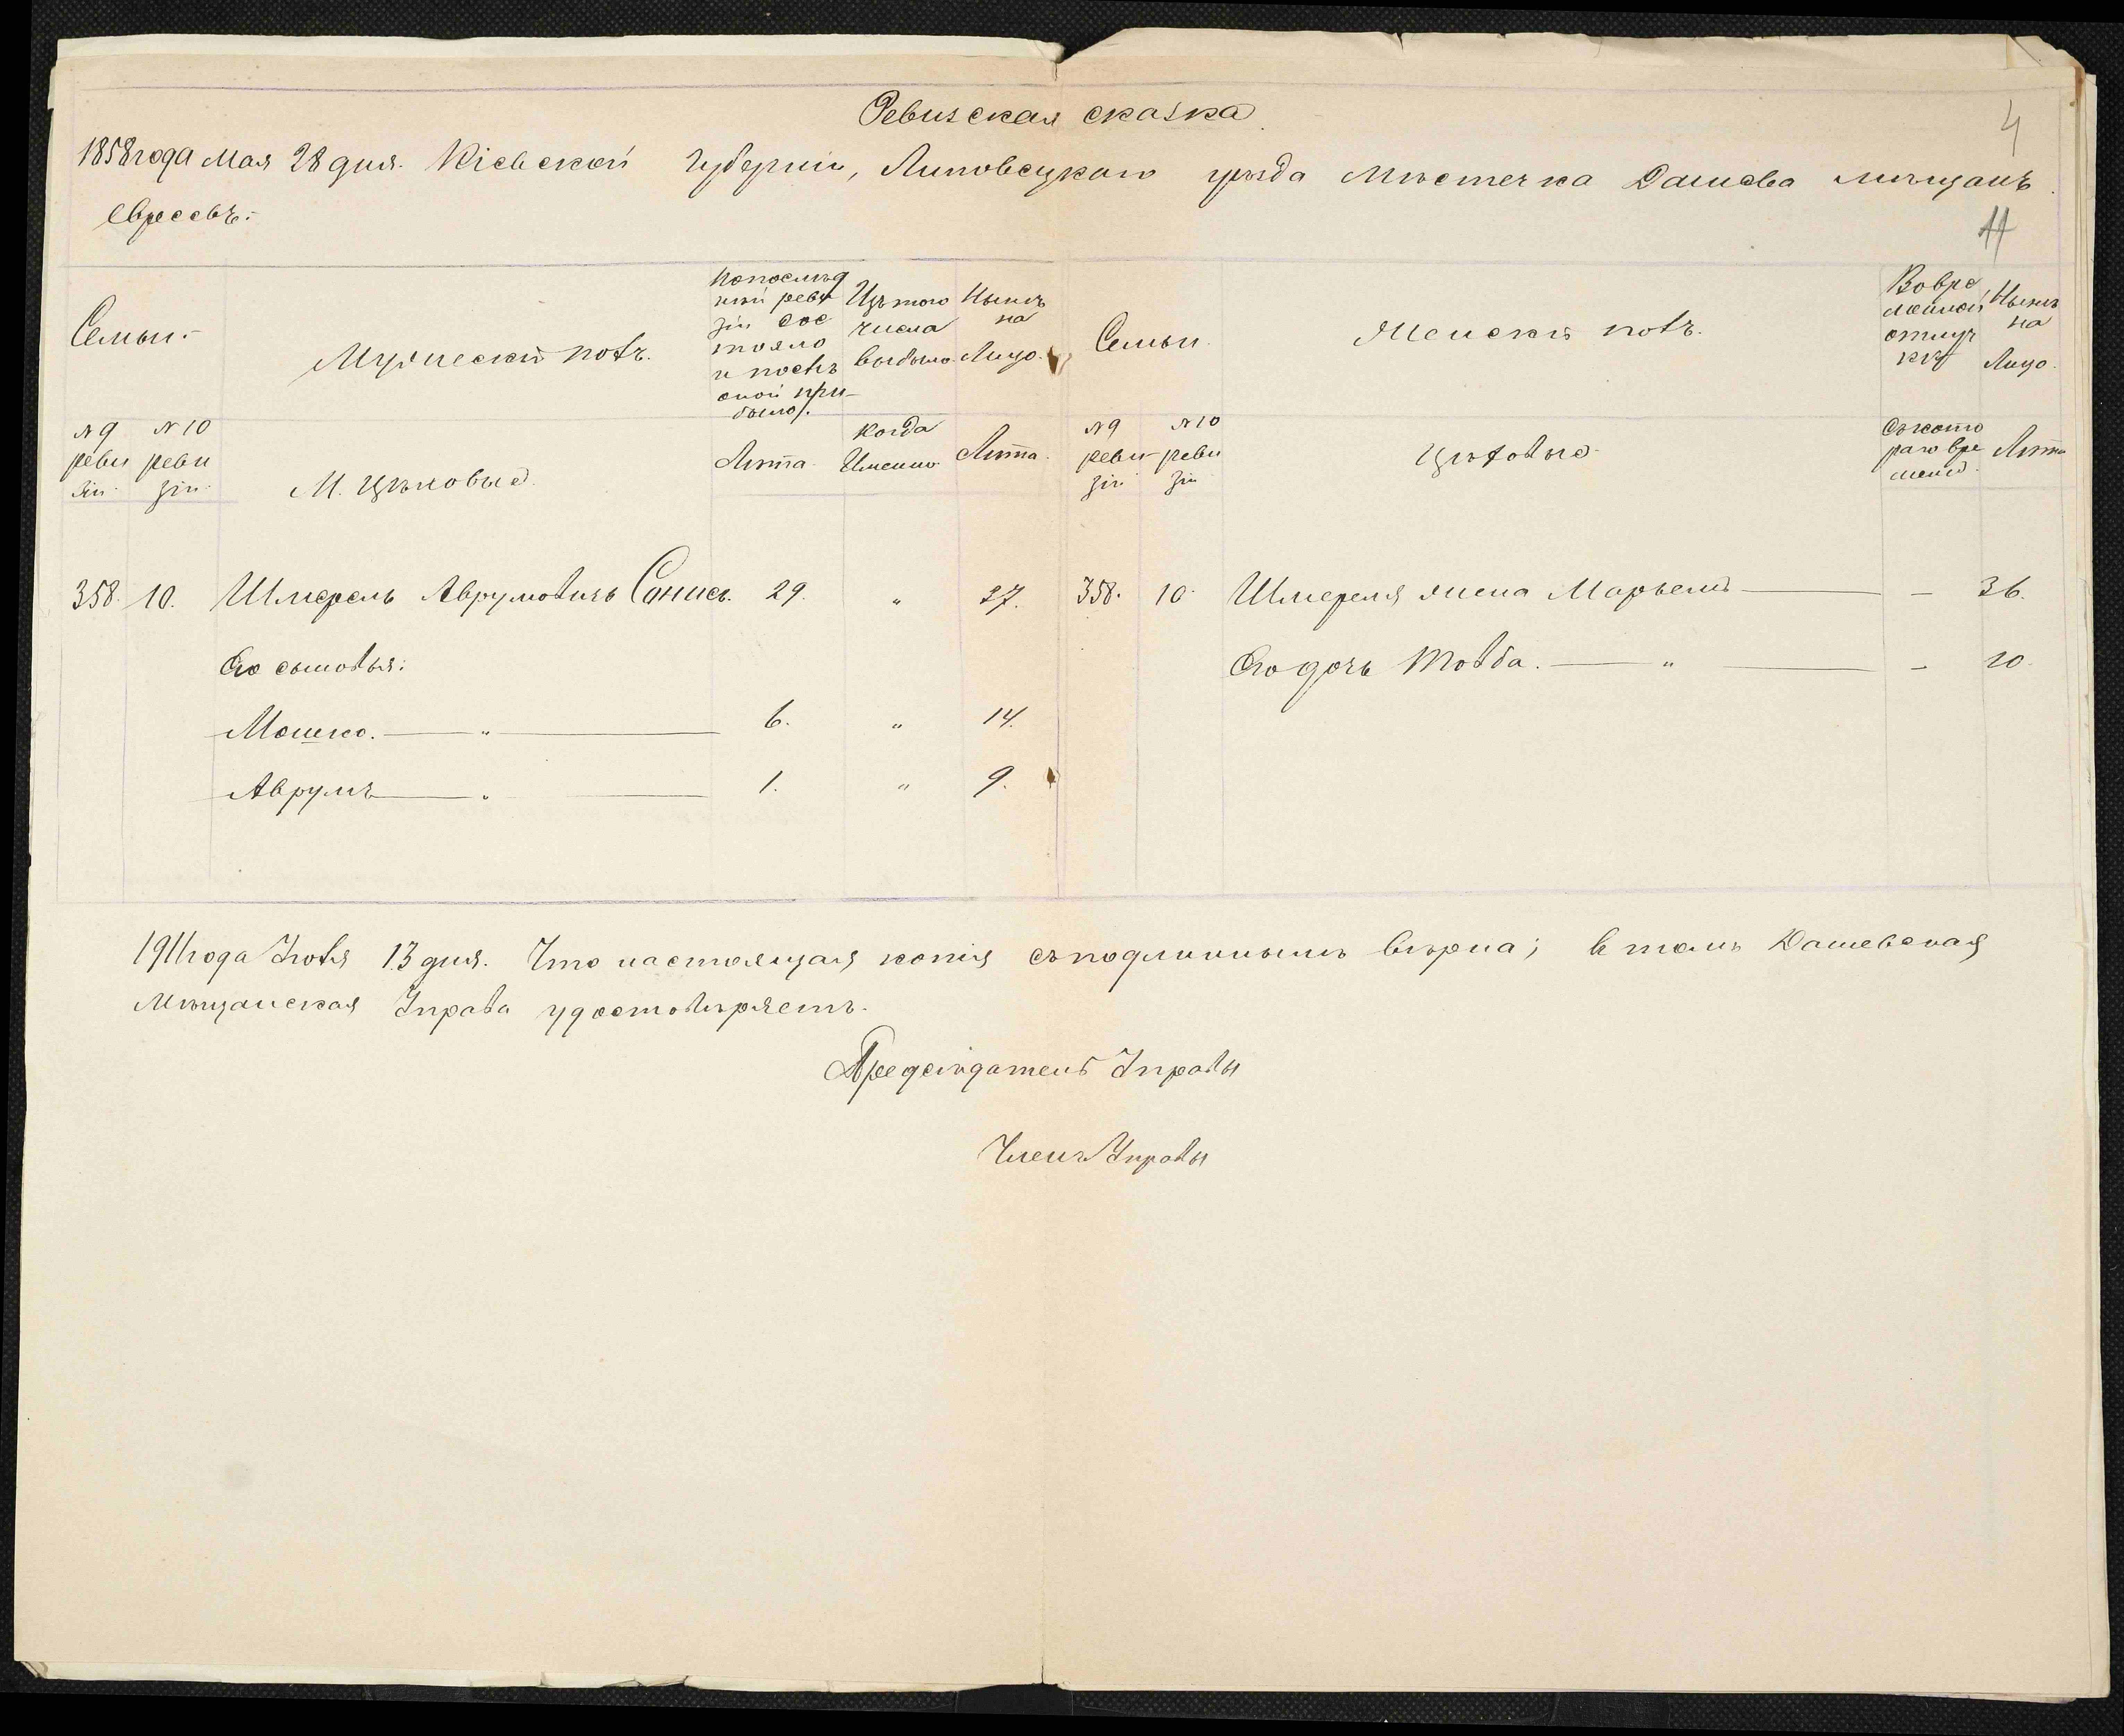 Ревизская сказка
4
1858 года Мая 28 дня. Кіевской Губерніи, Липовецкаго уѣзда Мѣстечка Дашева мѣщанъ
евреевъ.
11
Семьи.
Мужческій полъ.
По послѣд
ней реви
зіи сос
тояло
и послѣ
оной при-
было.
Изъ того
числа
выбыло.
Нынѣ
на
Лицо.
Семьи.
Женскій полъ.
Во вре
менной
отлуч
кѣ
Нынѣ
на
Лицо.
№ 9
реви
зіи
№ 10
реви
зіи
М.
Лѣта.
Когда
Именно
Лѣта.
№ 9
реви
зіи
№ 10
реви
зіи
Съ кото
раго вре
мени
Лѣта
358. 10. Шмерель Аврумовичъ 29. " 27. 358. 10. Шмереля жена Марьемъ — — 36.
Его сыновья: Его дочь Товба. — " — — 10.
Мошко. — " — 6. " 14.
Аврумъ — " — 1. " 9.
1911 года Іюля 13 дня. Что настоящая копія съ подлиннымъ вѣрна; в томъ Дашевская
Мѣщанская Управа удостовѣряетъ.
Предсѣдатель Управы
Членъ Управы